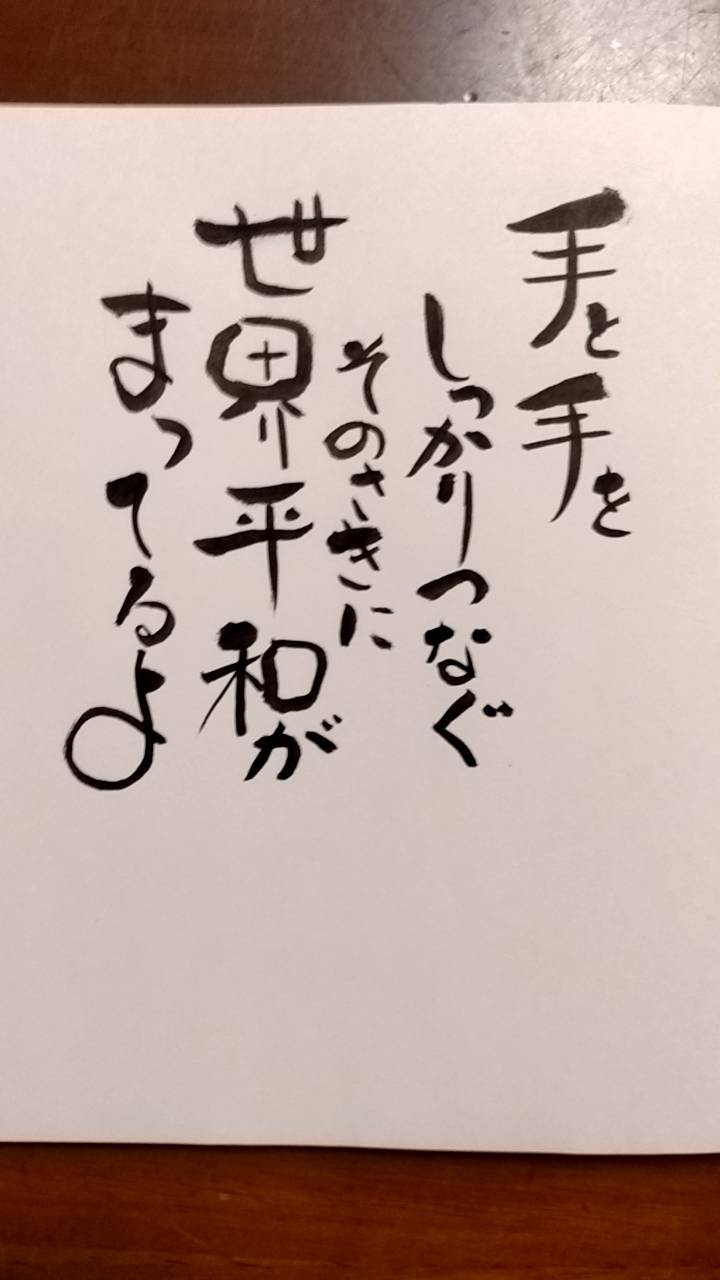 手と手を
しっかりつなぐ
そのさきに
世界平和が
まってるよ